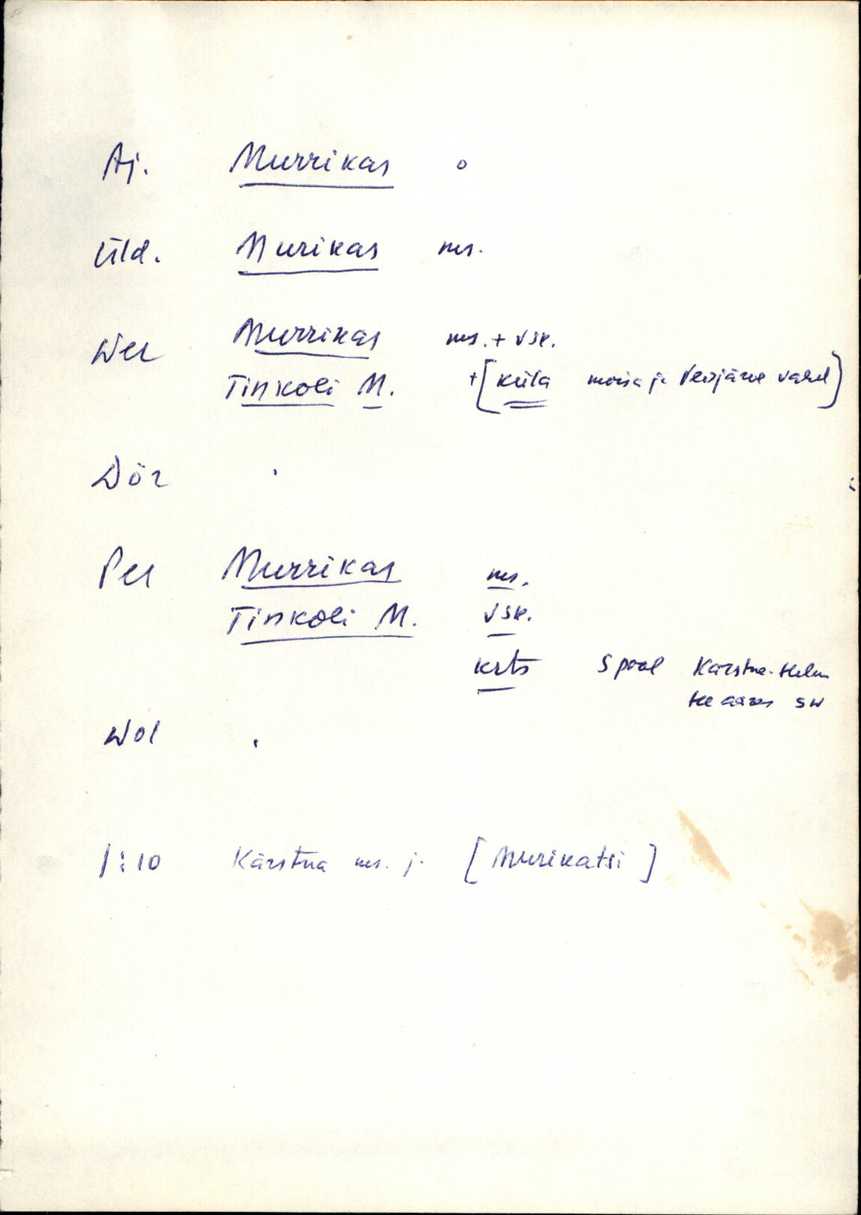 Aj. Murrikas o
Üld. Murikas ms.
Wer Murrikas ms. + vsk.
Tinkoli M. + [küla mõisa ja Veisjärve vahel]
Dör .
Per Murrikas ms.
Tinkoli M. vsk.
krts S pool Kärstna-Helme
tee ääres SW
Wol .
1:10 Kärstna ms. j. [Murikatsi]